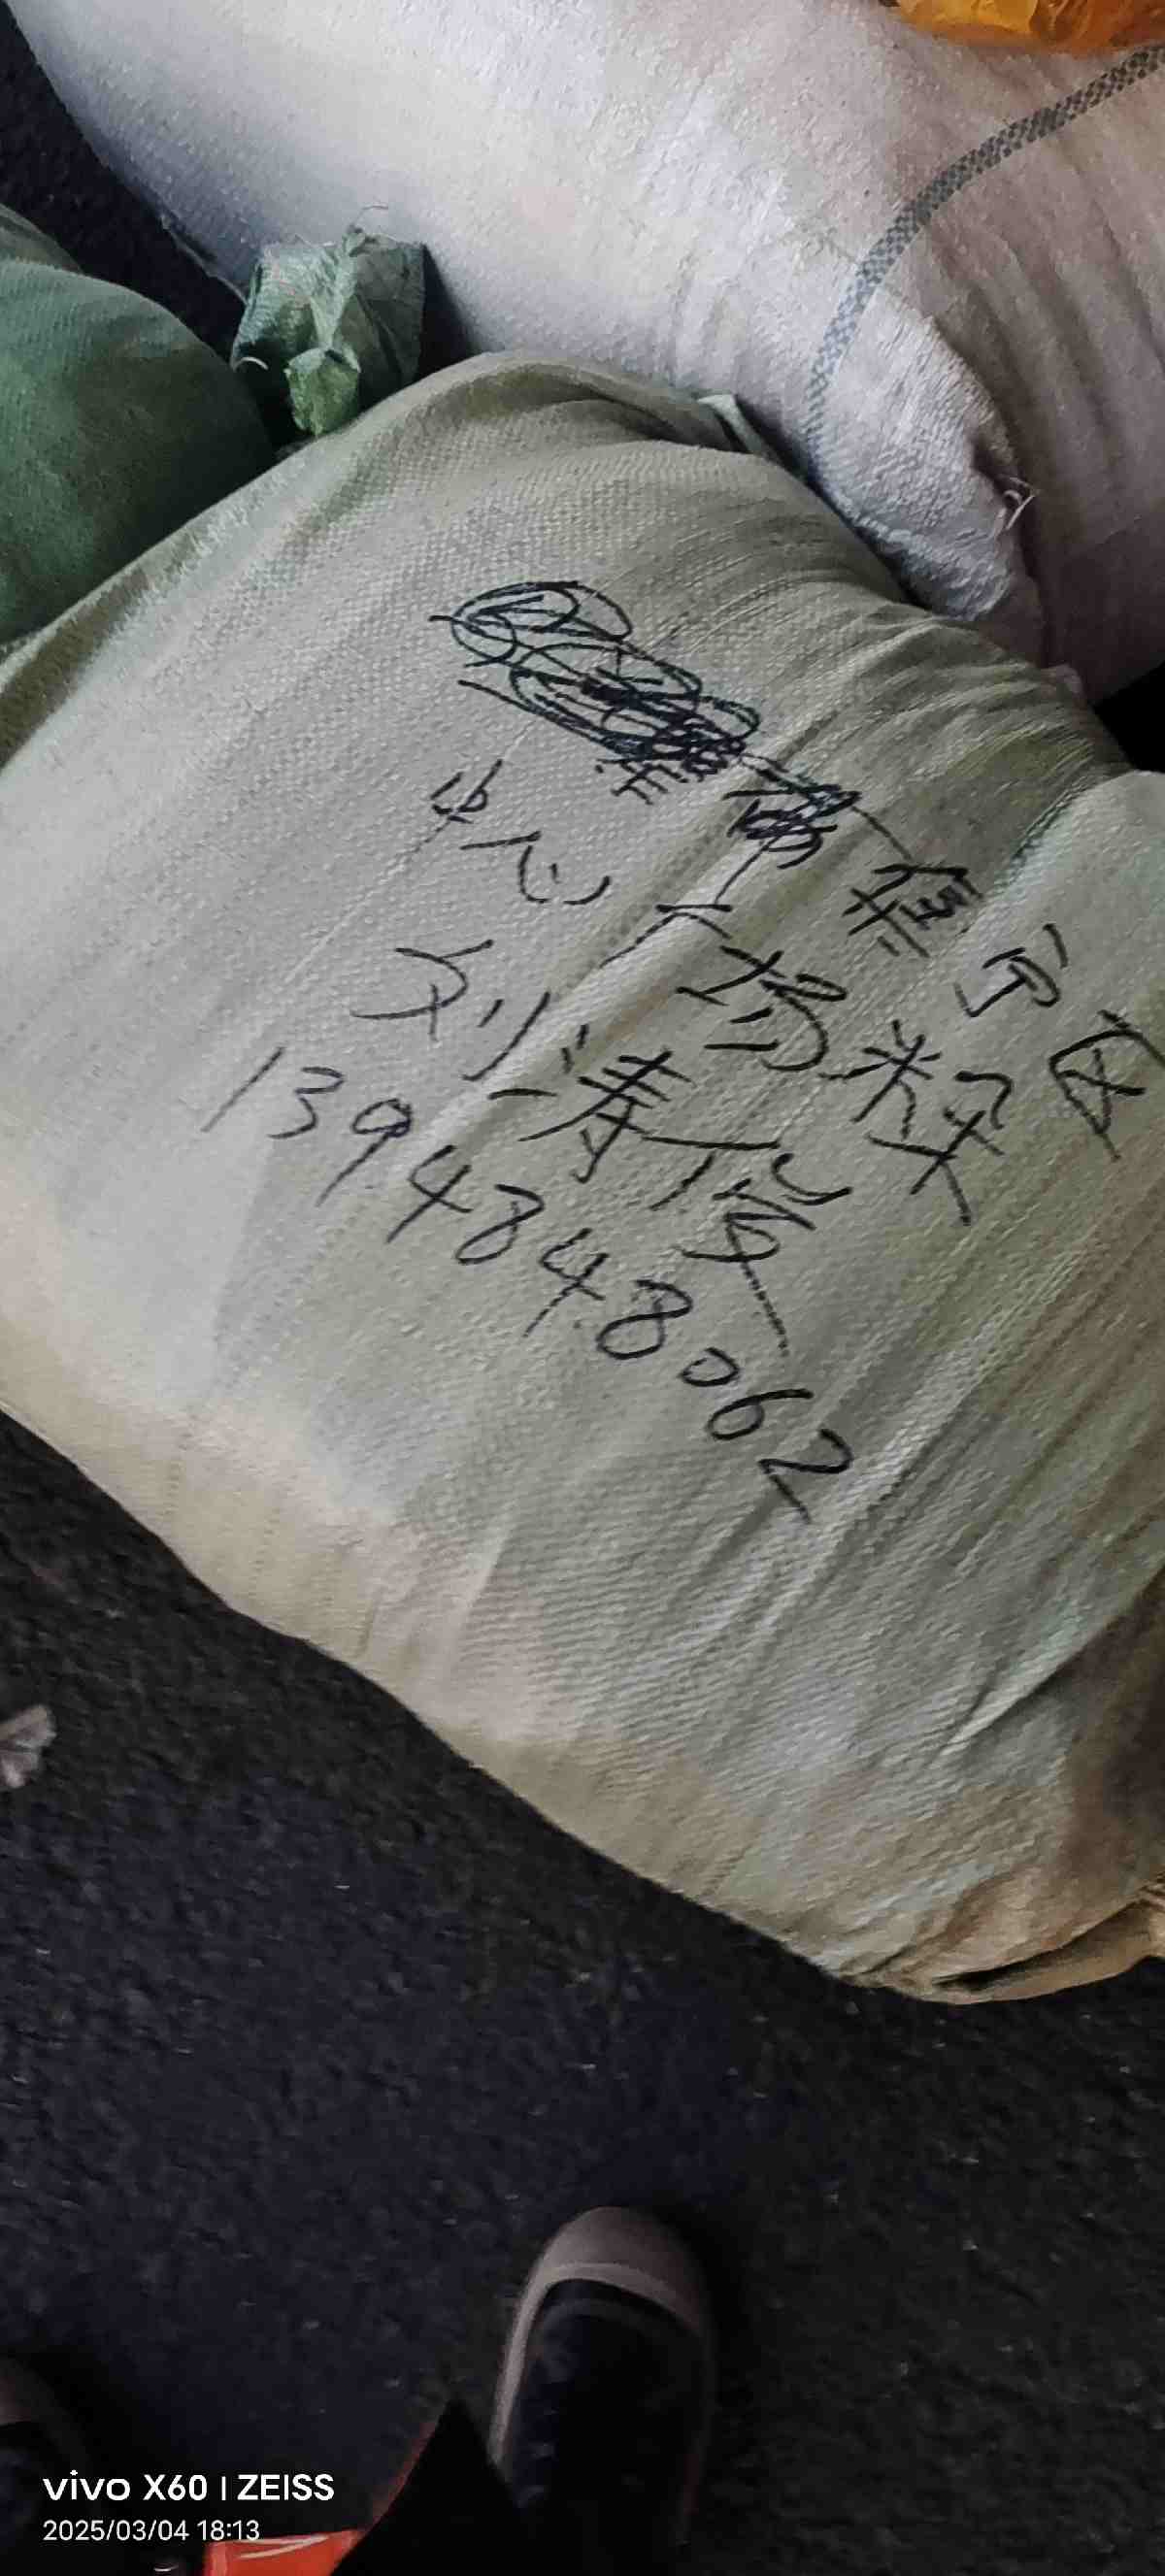 集宁区
中心广场粮
刘涛收
1394848062
vivo X60 | ZEISS
2025/03/04 18:13